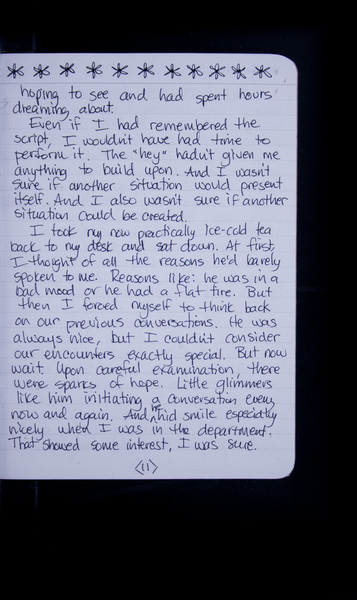 hoping to see and had spent hours
dreaming about.
Even if I had remembered the
script, I wouldn't have had time to
perform it. The "hey" hadn't given me
anything to build upon. And I wasn't
sure if another situation would present
itself. And I also wasn't sure if another
situation could be created.
I took my now practically Ice-cold tea
back to my desk and sat down. At first,
I thought of all the reasons he'd barely
spoken to me. Reasons like: he was in a
bad mood or he had a flat tire. But
then I forced myself to think back
on our previous conversations. He was
always nice, but I couldn't consider
our encounters exactly special. But now
wait upon careful examination, there
were sparks of hope. Little glimmers
like him initiating a conversation every
now and again. And, he'd smile especially
nicely when I was in the department.
That showed some interest, I was sure.
<11>